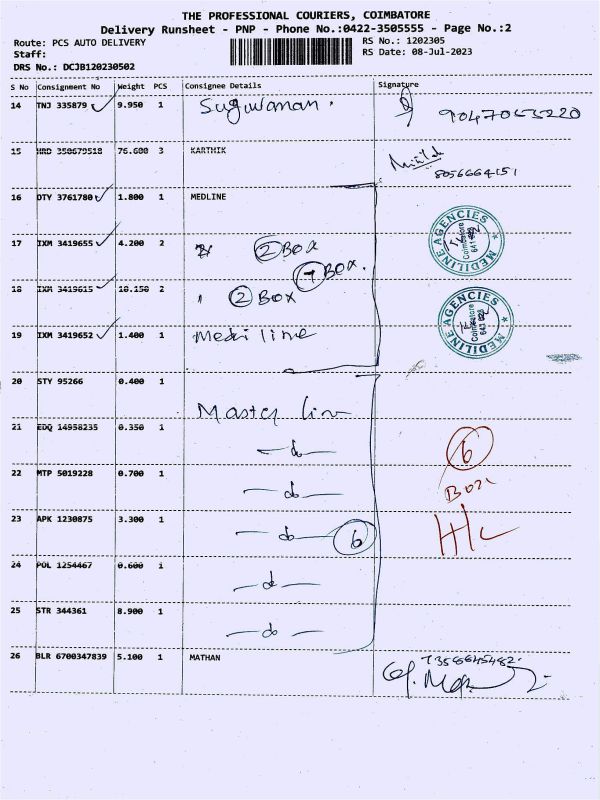 THE PROFESSIONAL COURIERS, COIMBATORE
Delivery Runsheet - PNP - Phone No.:0422-3505555 - Page No.:2
Route: PCS AUTO DELIVERY RS No.: 1202305
Staff: RS Date: 08-Jul-2023
DRS No.: DCJB120230502
S No Consignment No Weight PCS Consignee Details Signature
14 TNJ 335879 9.950 1 Suguvanan.
15 HRD 350679518 76.600 3 KARTHIK
8056664151
16 DTY 3761780 1.800 1 MEDLINE
MEDILINE AGENCIES Coimbatore
17 IXM 3419655 4.200 2 2 BOX
7 BOX.
18 IXM 3419615 10.150 2 " 2 BOX
MEDILINE AGENCIES Coimbatore
19 IXM 3419652 1.400 1 Medi line
20 STY 95266 0.400 1 Master line
21 EDQ 14958235 0.350 1 — do —
6
22 MTP 5019228 0.700 1 — do —
Box
23 APK 1230875 3.300 1 — do — 6
24 POL 1254467 0.600 1 — do —
25 STR 344361 8.900 1 — do —
26 BLR 6700347839 5.100 1 MATHAN